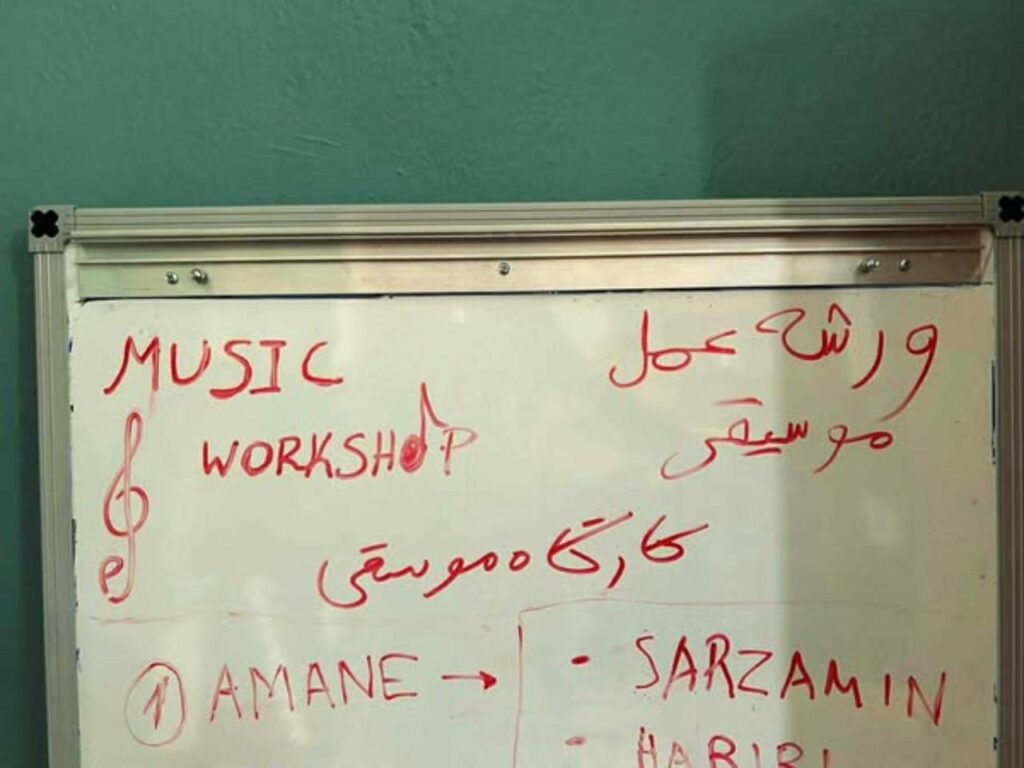 MUSIC
WORKSHOP
ورشة عمل
موسيقى
كارگاه موسقى
1 AMANE →
- SARZAMIN
- HABIBI